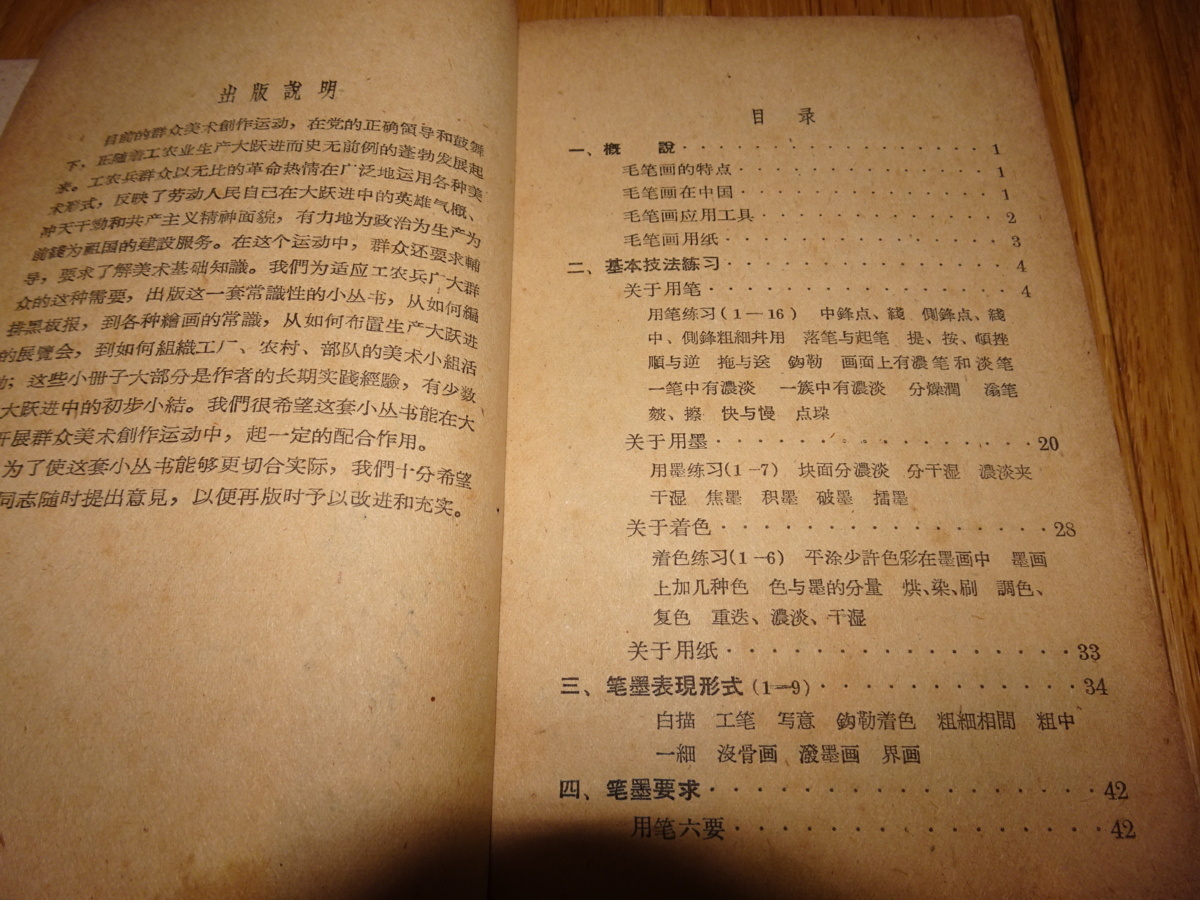 出版說明
目前的群众美术創作运动，在党的正确領导和鼓舞
下，正随着工农业生产大跃进而史无前例的蓬勃发展起
来。工农兵群众以无比的革命热情在广泛地运用各种美
术形式，反映了劳动人民自己在大跃进中的英雄气概、
冲天干劲和共产主义精神面貌，有力地为政治为生产为
前綫为祖国的建設服务。在这个运动中，群众还要求輔
导，要求了解美术基础知識。我們为适应工农兵广大群
众的这种需要，出版这一套常識性的小丛书，从如何編
排黑板报，到各种繪画的常識，从如何布置生产大跃进
的展覽会，到如何組織工厂、农村、部队的美术小組活
动；这些小册子大部分是作者的长期实践經驗，有少数
大跃进中的初步小結。我們很希望这套小丛书能在大
开展群众美术創作运动中，起一定的配合作用。
为了使这套小丛书能够更切合实际，我們十分希望
同志随时提出意見，以便再版时予以改进和充实。
目录
一、概說 1
毛笔画的特点 1
毛笔画在中国 1
毛笔画应用工具 2
毛笔画用纸 3
二、基本技法練习 4
关于用笔 4
用笔练习(1—16) 中鋒点、綫 側鋒点、綫
中、側鋒粗細幷用 落笔与起笔 提、按、頓挫
順与逆 拖与送 鈎勒 画面上有濃笔和淡笔
一笔中有濃淡 一族中有濃淡 分燥潤 滃笔
皴、擦 快与慢 点垛
关于用墨 20
用墨练习(1-7) 块面分濃淡 分干湿 濃淡夹
干湿 焦墨 积墨 破墨 擂墨
关于着色 28
着色练习(1-6) 平涂少許色彩在墨画中 墨画
上加几种色 色与墨的分量 烘、染、刷 調色、
复色 重迭、濃淡、干湿
关于用纸 33
三、笔墨表現形式(1—9) 34
白描 工笔 写意 鈎勒着色 粗細相間 粗中
一細 沒骨画 潑墨画 界画
四、笔墨要求 42
用笔六要 42